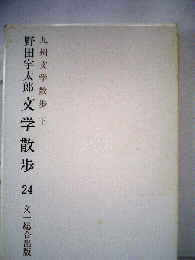 九州文学散歩 下
野田宇太郎文学散歩
24
文一総合出版